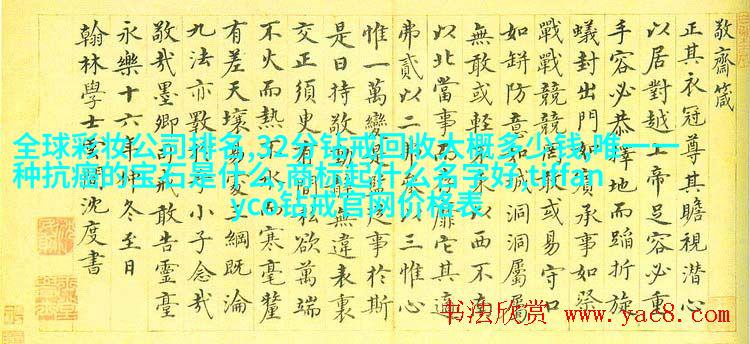 全球彩妆公司排名,32分钻戒回收大概多少钱,唯一一
种抗癌的宝石是什么,商标起什么名字好,tiffan
yco钻戒官网价格表
敬齋箴
正其衣冠尊其瞻視潛心
以居對越上帝足容必重
手容必恭擇地而蹈折旋
蟻封出門如承事如祭
戰戰兢兢敢或易守口
如缾防意如城洞洞屬屬
無敢或輕以西不南
以北當事而靡它其適
弗貳以二弗以三惟心
惟一萬變是事於斯
是曰持敬動無違表裏
交正須臾有間私欲萬端
不火而熱不而寒毫釐
有差天壤易三綱既淪
九法亦斁小子念哉
敬哉墨卿司戒敢告靈臺
永樂十六年仲冬至日
翰林學士雲間沈度書
书法欣赏 www.yac8.com